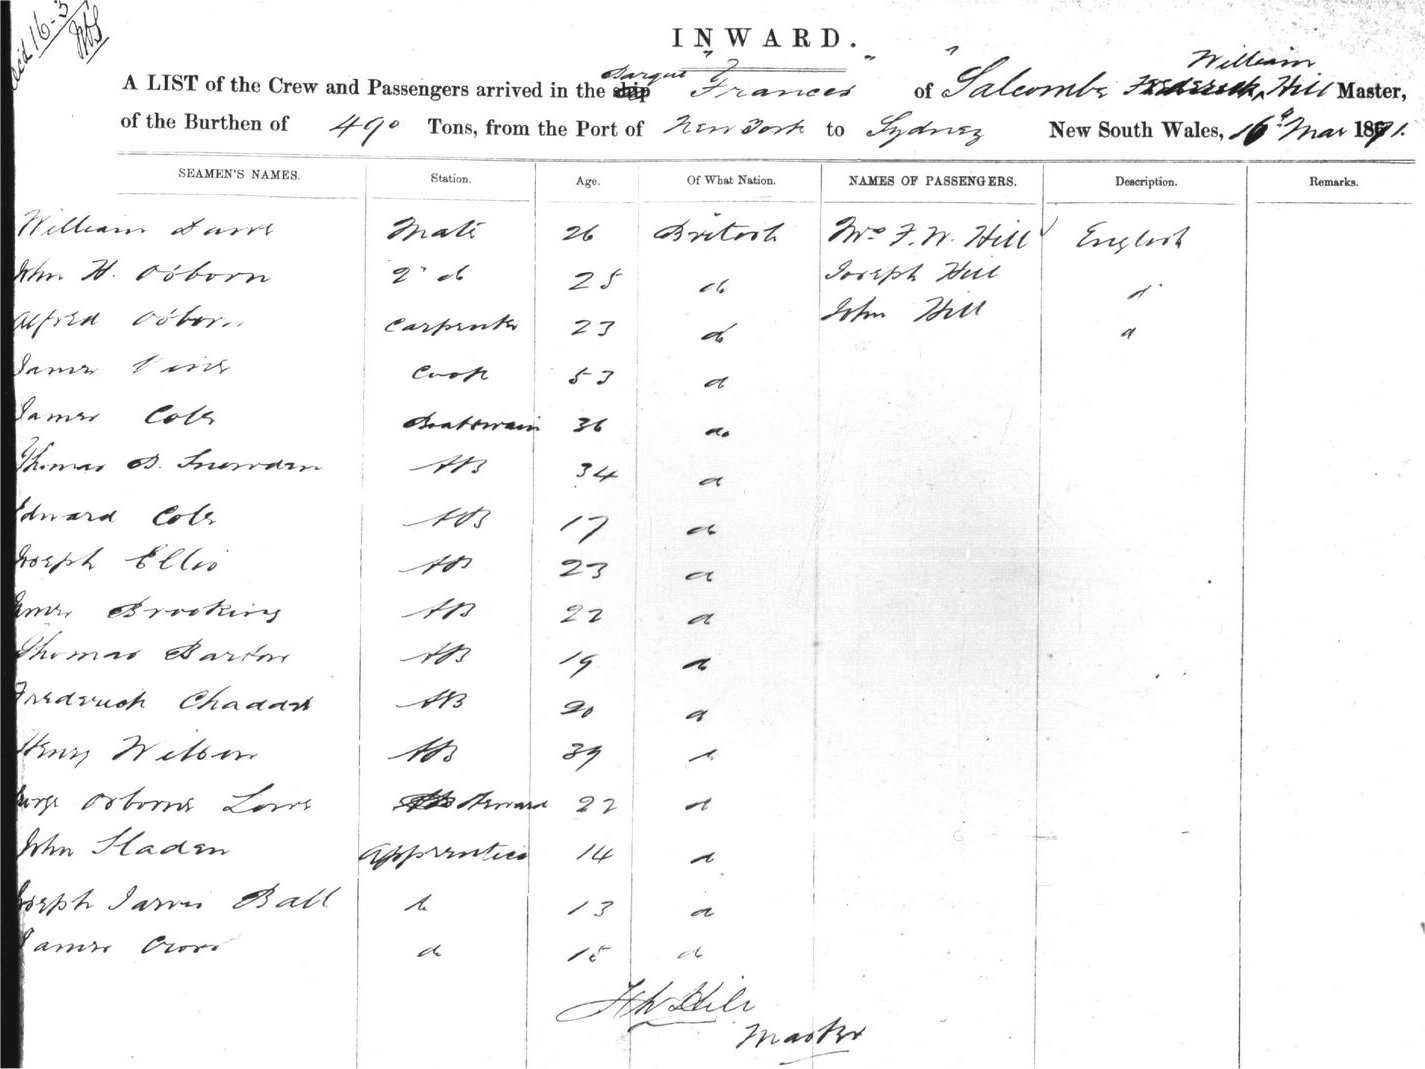 16-3
INWARD.
A LIST of the Crew and Passengers arrived in the ship Barque "Frances" of Salcombe Frederick William Hill Master,
of the Burthen of 490 Tons, from the Port of New York to Sydney New South Wales, 16th Mar 1871.
SEAMEN'S NAMES. Station. Age. Of What Nation. NAMES OF PASSENGERS. Description. Remarks.
William Mate 26 British Mrs F. W. Hill English
John H. Osborn 2d do 25 do Joseph Hill do
Alfred Osborn Carpenter 23 do John Hill do
James Cook 53 do
James Cole Boatswain 36 do
Thomas B. Snowden AB 34 do
Edward Cole AB 17 do
Joseph Ellis AB 23 do
James Brooking AB 22 do
Thomas Barton AB 19 do
Frederick Chadder AB 20 do
Henry Wilson AB 39 do
George Osborne Lowe Steward 22 do
John Sladen Apprentice 14 do
Joseph Jarvis Ball do 13 do
James Cross do 15 do
F W Hill
Master